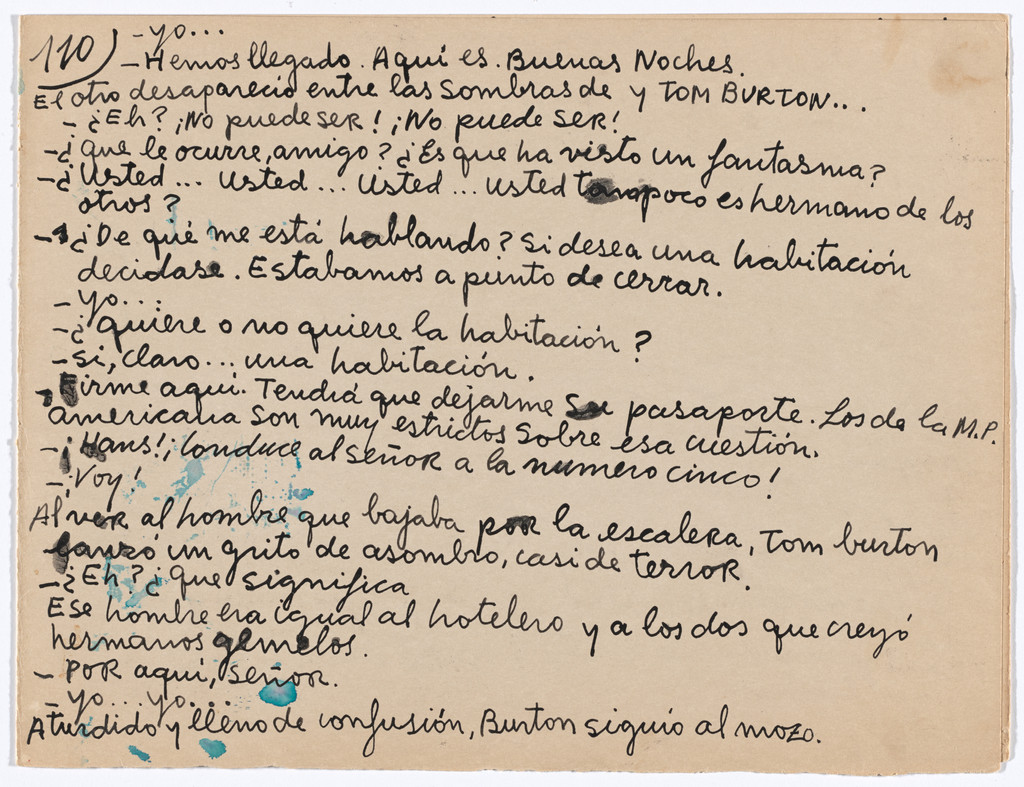 110) - yo...
- Hemos llegado. Aquí es. Buenas Noches.
El otro desapareció entre las sombras de y TOM BURTON...
- ¿Eh? ¡No puede ser! ¡No puede ser!
- ¿Que le ocurre, amigo? ¿Es que ha visto un fantasma?
- ¿Usted... usted... usted... usted tampoco es hermano de los
otros?
- ¿De qué me está hablando? Si desea una habitación
decidase. Estabamos a punto de cerrar.
- yo...
- ¿quiere o no quiere la habitación?
- Si, claro... una habitación.
- Firme aquí. Tendrá que dejarme su pasaporte. Los de la M.P.
americana son muy estrictos sobre esa cuestión.
- ¡Hans! ¡Conduce al señor a la numero cinco!
- ¡Voy!
Al ver al hombre que bajaba por la escalera, Tom burton
lanzó un grito de asombro, casi de terror.
- ¿Eh? ¿que significa
Ese hombre era igual al hotelero y a los dos que creyó
hermanos gemelos.
- Por aquí, señor.
- yo... yo...
Aturdido y lleno de confusión, Burton siguio al mozo.